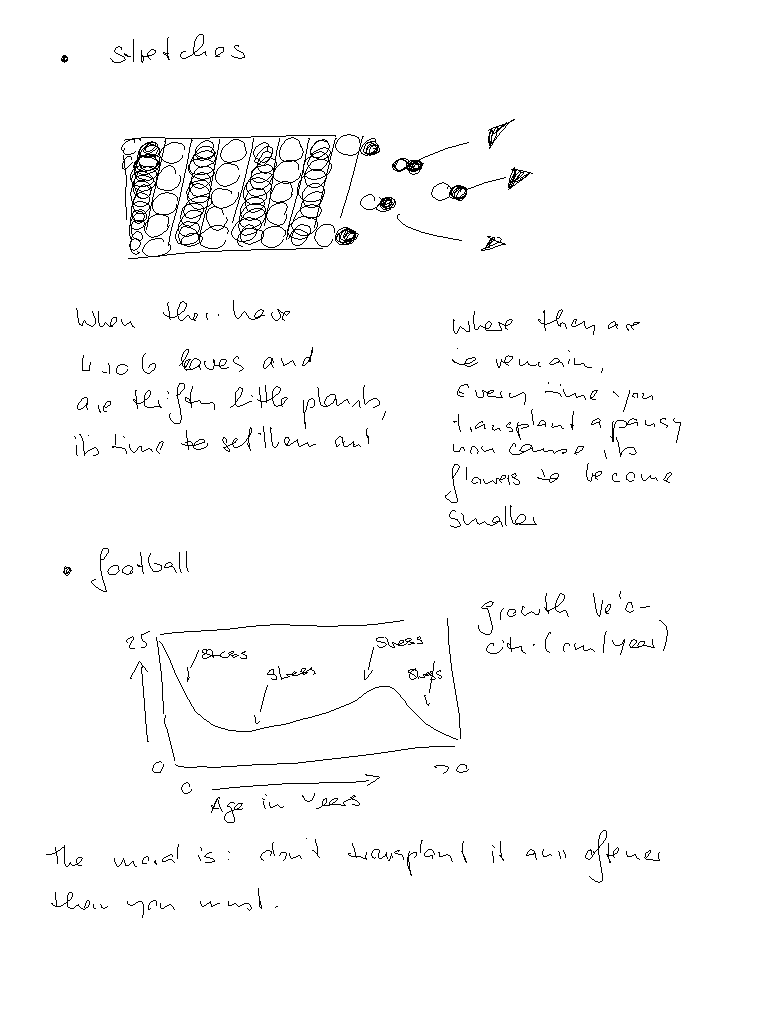 stretches
When they have
4 to 6 leaves and
are thrifty little plants,
it's time to set them out
where they are
to remain,
Every time you
transplant a pansy
you cause its
flowers to become
smaller
football
growth velo-
city (cm/year)
25
stress
stress
stress
stress
0
0
20
Age in years
The moral is: don't transplant it any oftener
than you must.